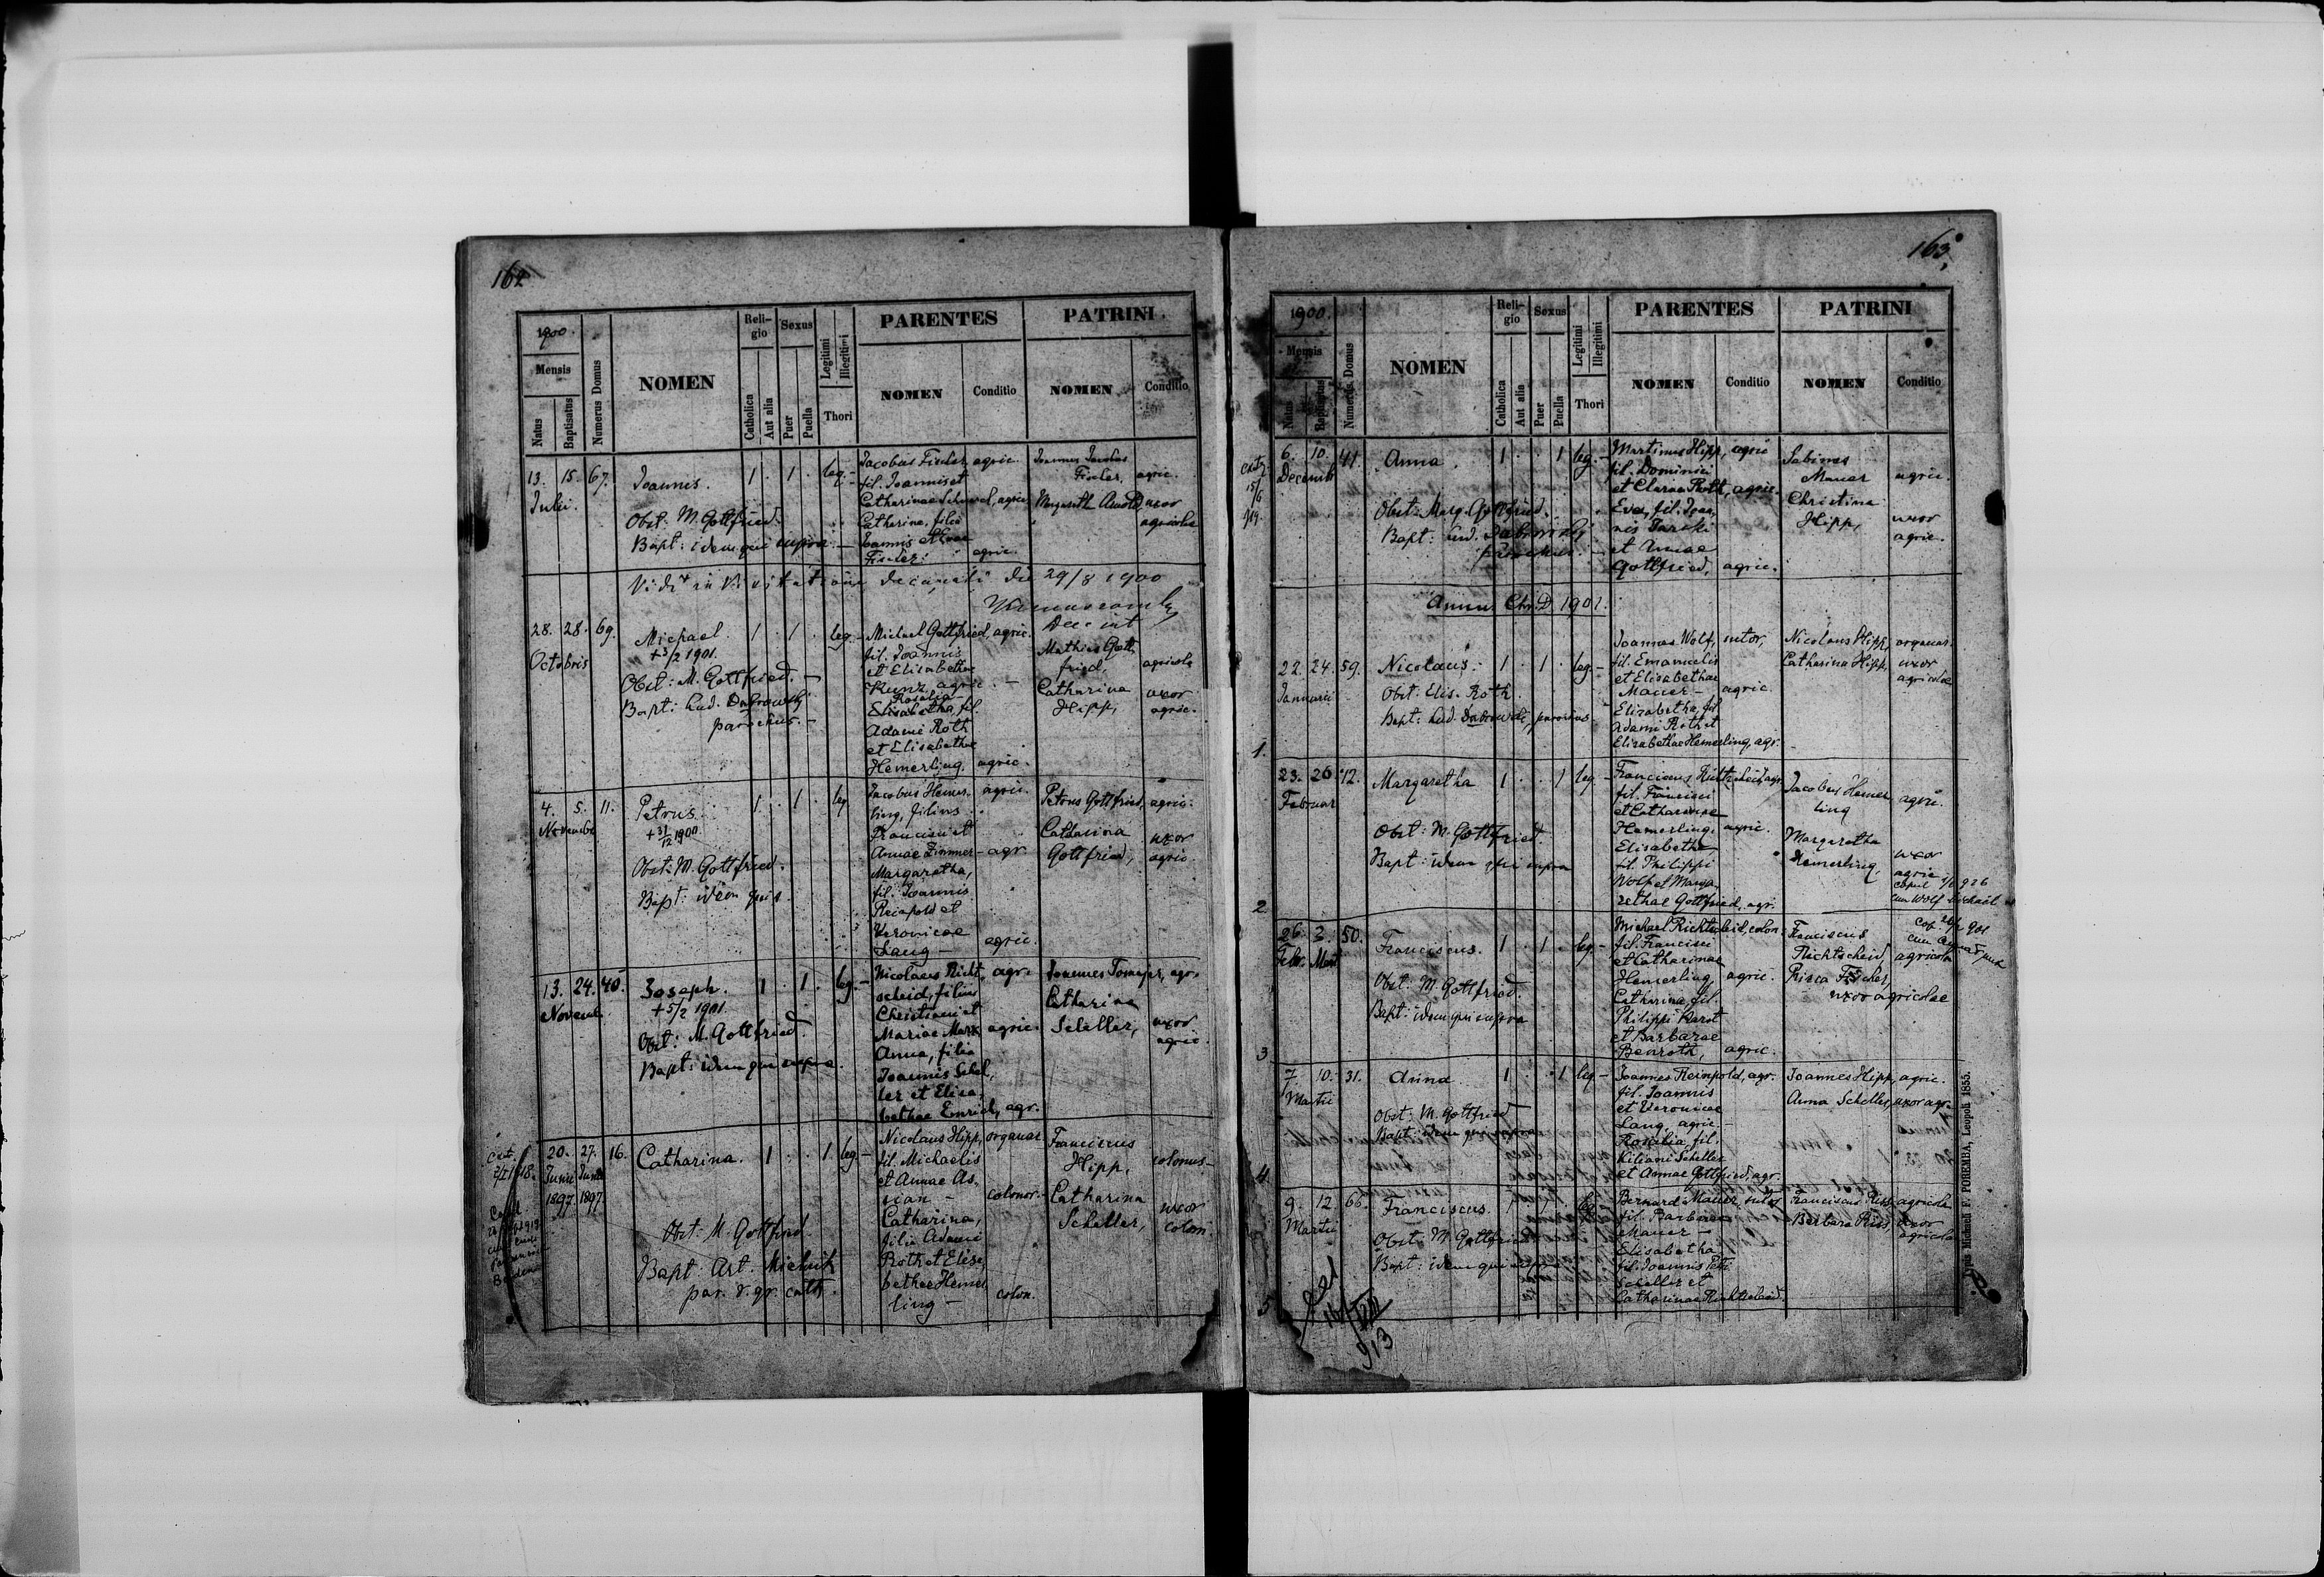 162
1900.
Mensis
Natus
Baptisatus
Numerus Domus
NOMEN
Reli-
gio
Catholica
Aut alia
Sexus
Puer
Puella
Legitimi
Illegitimi
Thori
PARENTES
NOMEN
Conditio
PATRINI
NOMEN
Conditio
13. 15. 67.
Julii.
Joannis.
1 . 1 . leg. -
Obst: M. Gottfried.
Bapt: idem qui supra. -
Jacobus Fischer, agric.
fil. Joannis et
Catharinae agric.
Catharina, filia
Joannis et Evae
Fischer. agric.
Fischer, agric.
Margareth Arnold, uxor
agricolae
Vidi in Visitatione decanali die 29/8 1900
28. 28. 69.
Octobris
Michael.
+ 3/2 1901.
1 . 1 . leg. -
Obst: M. Gottfried. -
Bapt: Lud. Dabrowski
parochus. -
Michael Gottfried, agric.
fil. Joannis
et Elisabethae
Kunz, agric. -
Rosalia -
Elisabetha, fil.
Adami Roth
et Elisabethae
Hemerling. agric.
Mathias Gott
fried, agricola
Catharina uxor
Hipp, agric.
4. 5. 11.
Novembr
Petrus.
+ 31/12 1900.
1 . 1 . leg
Obst: M. Gottfried.
Bapt: idem qui s.
Jacobus Hemer- agric.
ling, filius
Francisci et
Annae Zimmer - agr.
Margaretha,
fil. Joannis
Reinpold et
Veronicae
Lang - agric.
Petrus Gottfried, agric.
Catharina uxor
Gottfried, agric.
13. 24. 40.
Novemb.
Joseph.
+ 5/2 1901.
1 . 1 . leg. -
Obst: M. Gottfried.
Bapt: idem qui supra.
Nicolaus Richt- agr.
scheid, filius
Christiani et
Mariae Marx agric.
Anna, filia
Joannis Schel,
ler et Elisa,
bethae Emrich, agr.
Joannes agr.
Catharina
Scheller, uxor
agric.
20. 27. 16.
Junii Junii
1897. 1897.
Catharina.
1 . . 1 leg. -
Obst: M. Gottfried.
Bapt: Art.
par. r. gr. cath.
Nicolaus Hipp, organar.
fil. Michaelis
et Annae As,
man - colonor. -
Catharina,
filia Adami
Roth et Elisa,
bethae Hemer
ling - colon.
Franciscus
Hipp, colonus -
Catharina
Scheller, uxor
colon.
163.
1900.
Mensis
Natus
Baptisatus
Numerus Domus
NOMEN
Reli-
gio
Catholica
Aut alia
Sexus
Puer
Puella
Legitimi
Illegitimi
Thori
PARENTES
NOMEN
Conditio
PATRINI
NOMEN
Conditio
6. 10. 41.
Decemb
Anna.
1 . . 1 leg. -
Obst: Marg. Gottfried.
Bapt: Lud. Dabrowski
parochus. -
Martinus Hipp, agric
fil. Dominici
et Clarae Roth, agric.
Eva, fil. Joan,
nis
et Annae
Gottfried, agric.
Sabinus
Mauer agric.
Christina
Hipp, uxor
agric.
Anno Chr. D 1901.
22. 24. 59.
Januarii
Nicolaus.
1 . 1 . leg. -
Obst: Elis. Roth.
Bapt: Lud. Dabrowski, parochus
Joannes Wolf, sutor,
fil. Emanuelis
et Elisabethae
Mauer - agric.
Elizabetha, fil.
Adami Roth et
Elizabethae Hemerling, agr.
Nicolaus Hipp, organar.
Catharina Hipp, uxor
agricolae
1.
23. 26. 12.
Februar
Margaretha
1 . . 1 leg. -
Obst: M. Gottfried.
Bapt: idem qui supra
Franciscus Richtscheid, agr.
fil. Francisci
et Catharinae
Hemerling, agric.
Elisabetha
fil. Philippi
Wolf et Marga,
rethae Gottfried, agr.
Jacobus Hemer
ling agric.
Margaretha
Hemerling, uxor
agric
cum Wolf Michael
2.
26. 3. 50.
Febr. Mart
Franciscus.
1 . 1 . leg. -
Obst: M. Gottfried.
Bapt: idem qui supra
Michael Richtscheid, colon.
fil. Francisci
et Catharinae
Hemerling, agric.
Catharina fil.
Philippi Karst
et Barbarae
Benroth, agric.
Franciscus
Richtscheid, agricola
Prisca Fischer,
uxor agricolae
3
7. 10. 31.
Martii
Anna.
1 . . 1 leg. -
Obst: M. Gottfried
Bapt: idem qui supra
Joannes Reinpold, agr.
fil. Joannis
et Veronicae
Lang, agric. -
Rosalia fil.
Kiliani Scheller
et Annae Gottfried, agr.
Joannes Hipp, agric.
Anna Scheller, uxor agr.
4.
9. 12. 66.
Martii
Franciscus.
1 . 1 . leg. -
Obst: M. Gottfried
Bapt: idem qui supra
Bernard Mauer, sutor
fil. Barbarae
Mauer -
Elisabetha
fil. Joannis Petri
Scheller et
Catharinae Richtscheid.
Franciscus Riss, agricola
Barbara Riss, uxor
agricolae
5
Typis Michaeli F. POREMBA, Leopoli 1855.